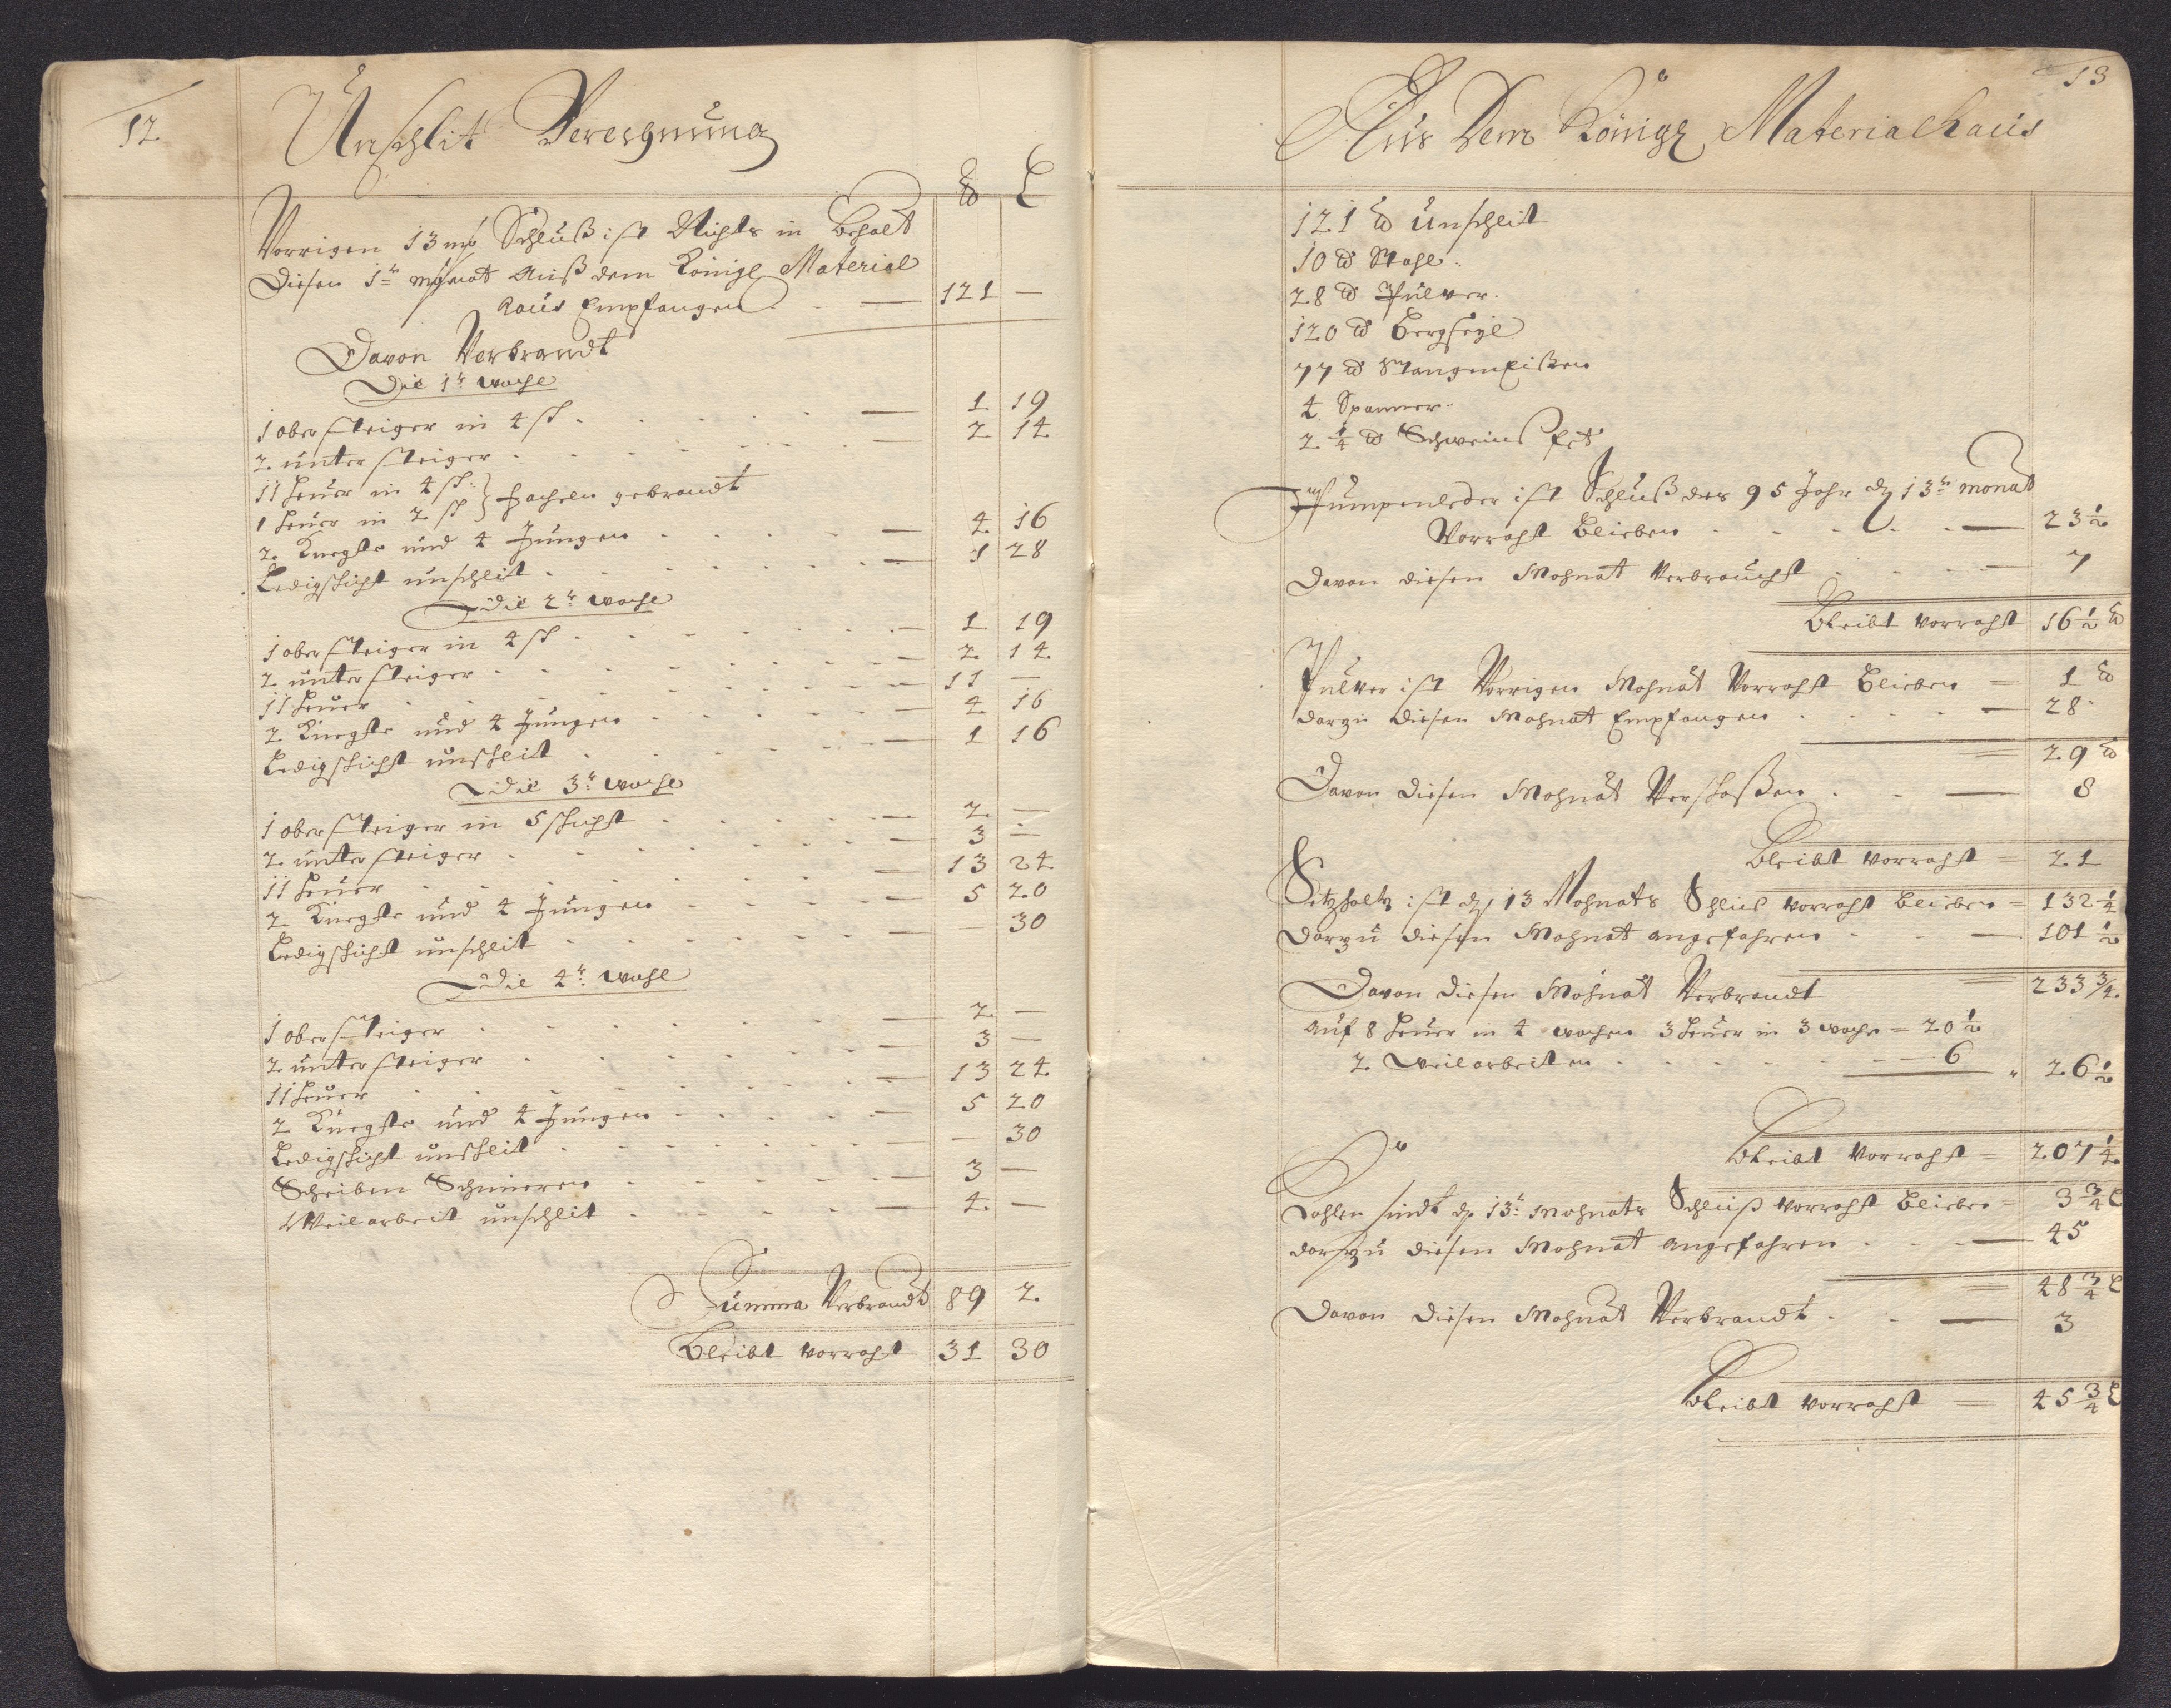 12
Unschlit Berechnung
℔ L
Vorrigen 13 mo Schluß ist Nichts in Behalt
Diesen 1ⁿ Monat Auß dem Königl Material
Haus Empfangen — 121 —
Davon Verbrandt
Die 1ⁿ woche
1 ober steiger in 4 sch — 1 19
2 unter steiger — 2 14
11 heuer in 4 sch
1 heuer in 2 sch } fachseln gebrandt
2 Knechte und 4 Jungen — 4 16
Ledigschicht unschleit — 1 28
Die 2ⁿ woche
1 ober steiger in 4 sch — 1 19
2 unter steiger — 2 14
11 heuer — 11 —
2 Knechte und 4 Jungen — 4 16
Ledigschicht unschleit — 1 16
Die 3ⁿ woche
1 ober steiger in 5 schicht — 2 —
2 unter steiger — 3 —
11 heuer — 13 24
2 Knechte und 4 Jungen — 5 20
Ledigschicht unschleit — 30
Die 4ⁿ woche
1 ober steiger — 2 —
2 unter steiger — 3 —
11 heuer — 13 24
2 Knechte und 4 Jungen — 5 20
Ledigschicht unschleit — — 30
Scheiben Schmieren — 3 —
Weilarbeit unschlit — 4 —
Summa Verbrandt 89 2
Bleibt vorraht 31 30
13
Aus Dem Königl Materialhaus
121 ℔ Unschleit
10 ℔ Stahl
28 ℔ Pulver
120 ℔ Bergseyl
77 ℔ Stangen Eißen
4 Spanner
2 1/4 ℔ Schweins fet
Pumpenleder ist Schluß des 95 Jahr dß 13ⁿ monat
Vorraht Blieben — 23 1/2
Davon diesen Mohnat Verbraucht — 7
Bleibt vorraht 16 1/2 ℔
Pulver ist Vorrigen Mohnat Vorraht Blieben = 1 ℔
darzu diesen Mohnat Empfangen — 28
= 29 ℔
Davon diesen Mohnat Verschoßen — 8
Bleibt vorraht = 21
Setzholtz ist dß 13 Mohnats Schlus vorraht blieben = 132 1/4
darzu diesen Mohnat angefahren — 101 1/2
= 233 3/4
Davon diesen Mohnat Verbrandt
auf 8 heuer in 4 wochen 3 heuer in 3 woche = 20 1/2
2 weilarbeiten — 6 " 26 1/2
Bleibt vorraht = 207 1/4
Kohlen sindt dß 13ⁿ Mohnats Schluß vorraht blieben = 3 3/4 L
darzu diesen Mohnat angefahren — 45
= 48 3/4 L
Davon diesen Mohnat Verbrandt — 3
Bleibt vorraht = 45 3/4 L